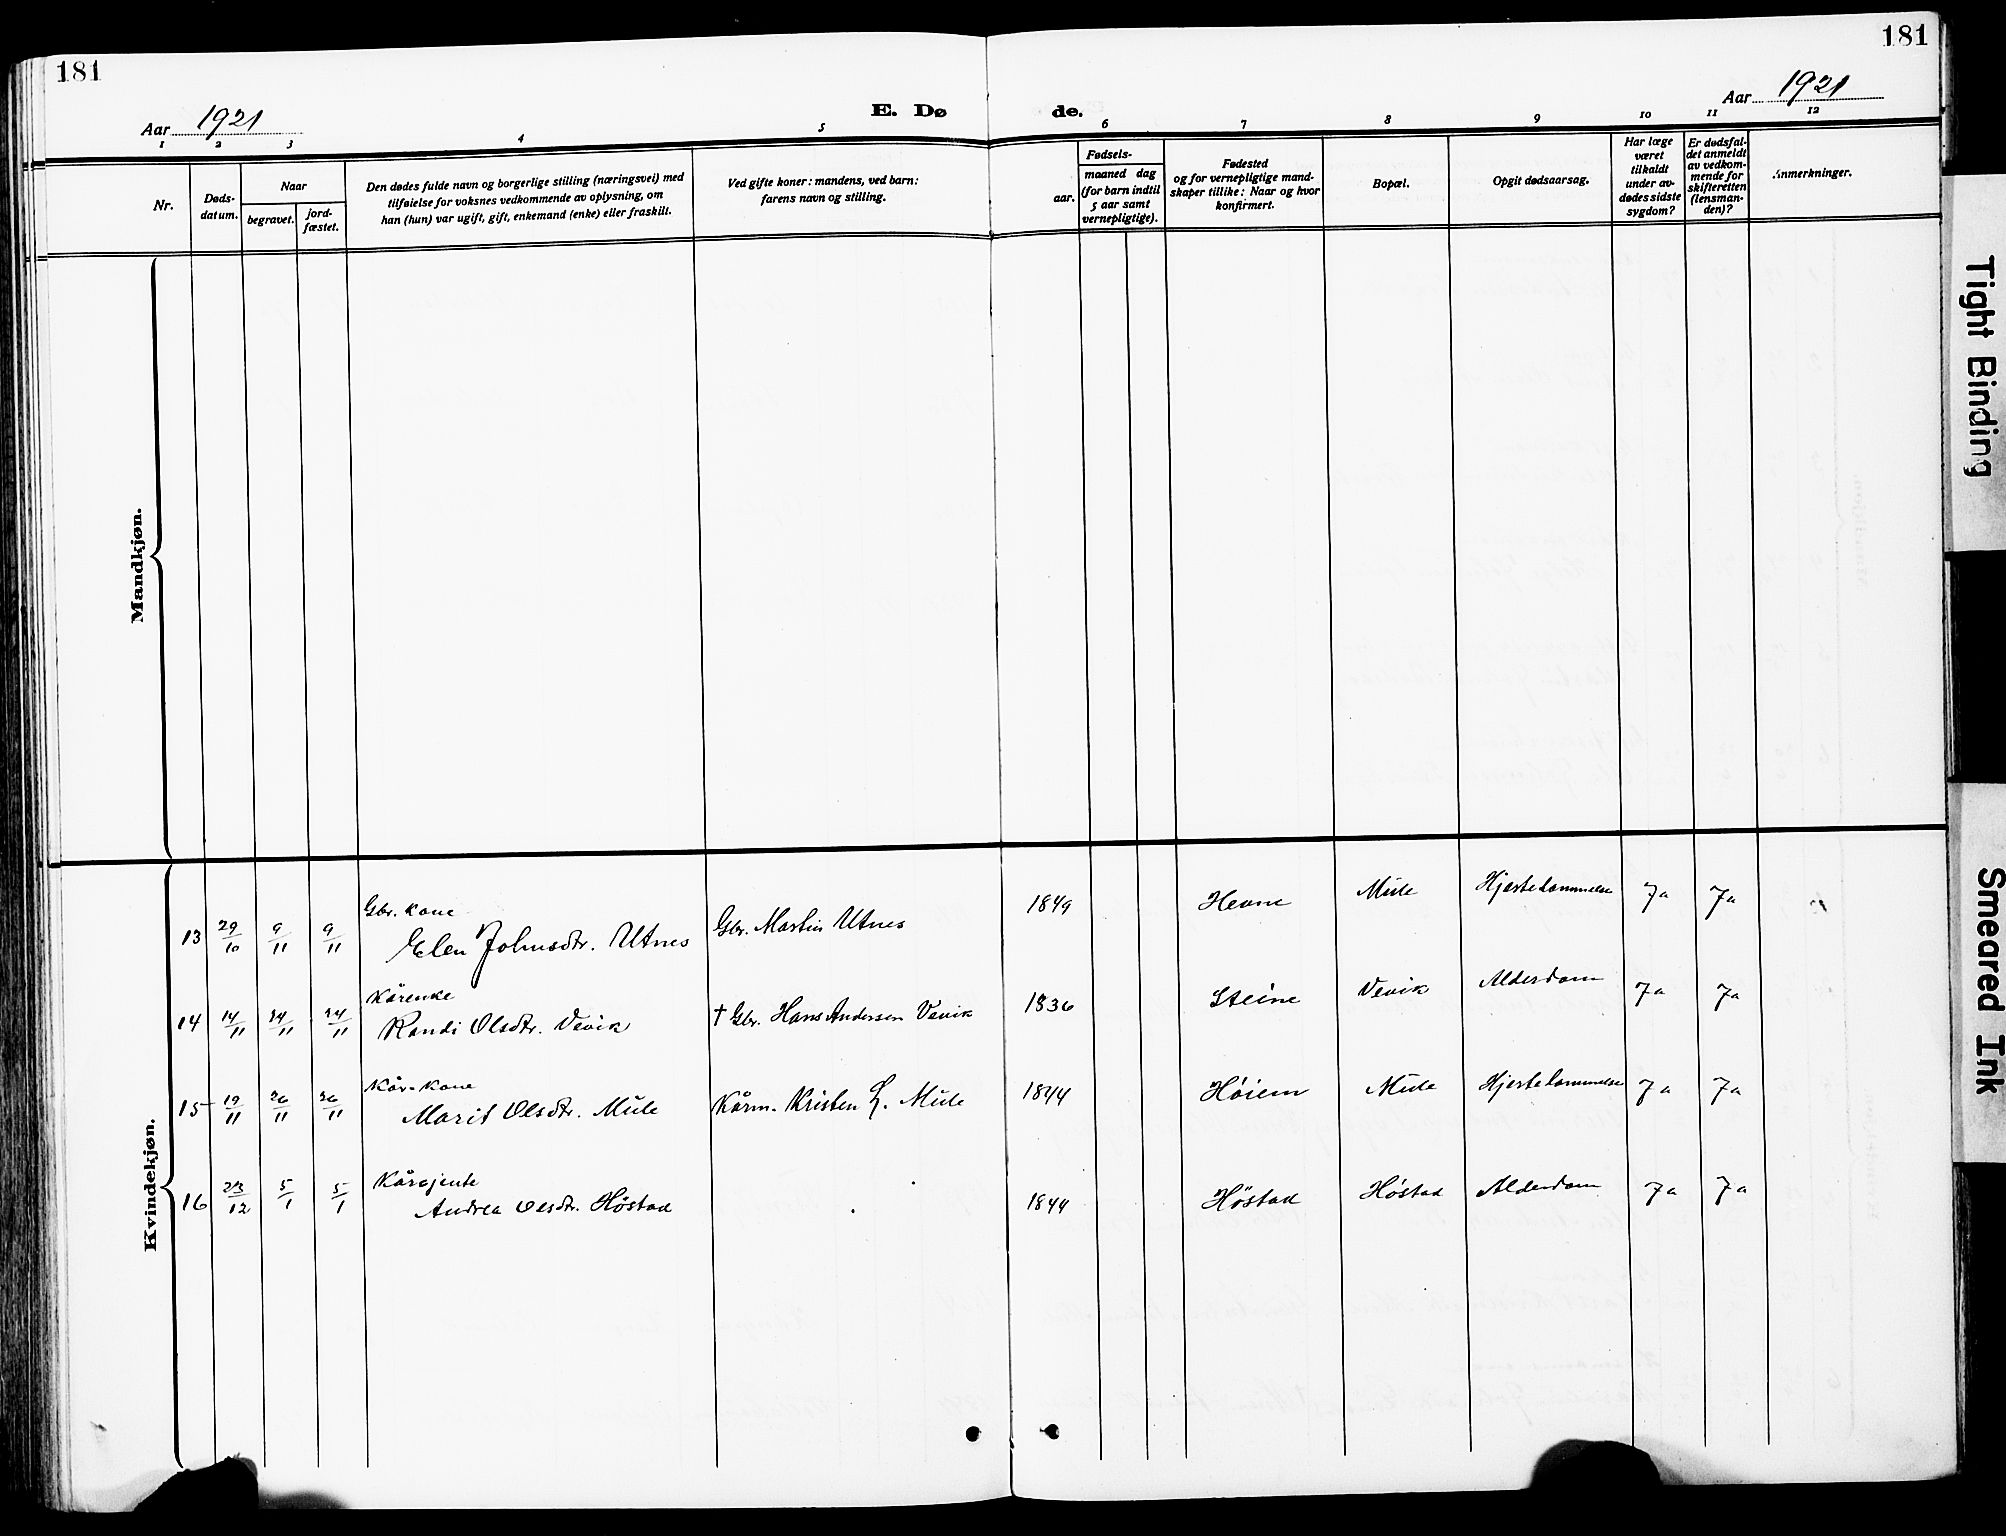 181
181
Aar 1921
E. Dø
de.
Aar 1921
1 2 3 4 5 6 7 8 9 10 11 12
Nr.
Døds-
datum.
Naar
begravet.
jord-
fæstet.
Den dødes fulde navn og borgerlige stilling (næringsvei) med
tilføielse for voksnes vedkommende av oplysning, om
han (hun) var ugift, gift, enkemand (enke) eller fraskilt.
Ved gifte koner: mandens, ved barn:
farens navn og stilling.
Fødsels-
aar.
maaned dag
(for barn indtil
5 aar samt
vernepligtige).
Fødested
og for vernepligtige mand-
skaper tillike: Naar og hvor
konfirmert.
Bopæl.
Opgit dødsaarsag.
Har læge
været
tilkaldt
under av-
dødes sidste
sygdom?
Er dødsfal-
det anmeldt
av vedkom-
mende for
skifteretten
(lensman-
den)?
Anmerkninger.
Mandkjøn.
Kvindekjøn.
Gbr. kone
13 29/10 9/11 9/11 Elen Johnsdtr. Utnes Gbr. Martin Utnes 1849 Hevne Mule Hjertelammelse Ja Ja
Kårenke
14 14/11 24/11 24/11 Randi Olsdtr. Vevik † Gbr. Hans Andersen Vevik 1836 Steine Vevik Alderdom Ja Ja
Kår-kone
15 19/11 26/11 26/11 Marit Olsdtr. Mule Kårm. Kristen L. Mule 1844 Høiem Mule Hjertelammelse Ja Ja
Kårsjente
16 23/12 5/1 5/1 Andrea Olsdtr. Høstad 1844 Høstad Høstad Alderdom Ja Ja
Tight Binding
Smeared Ink